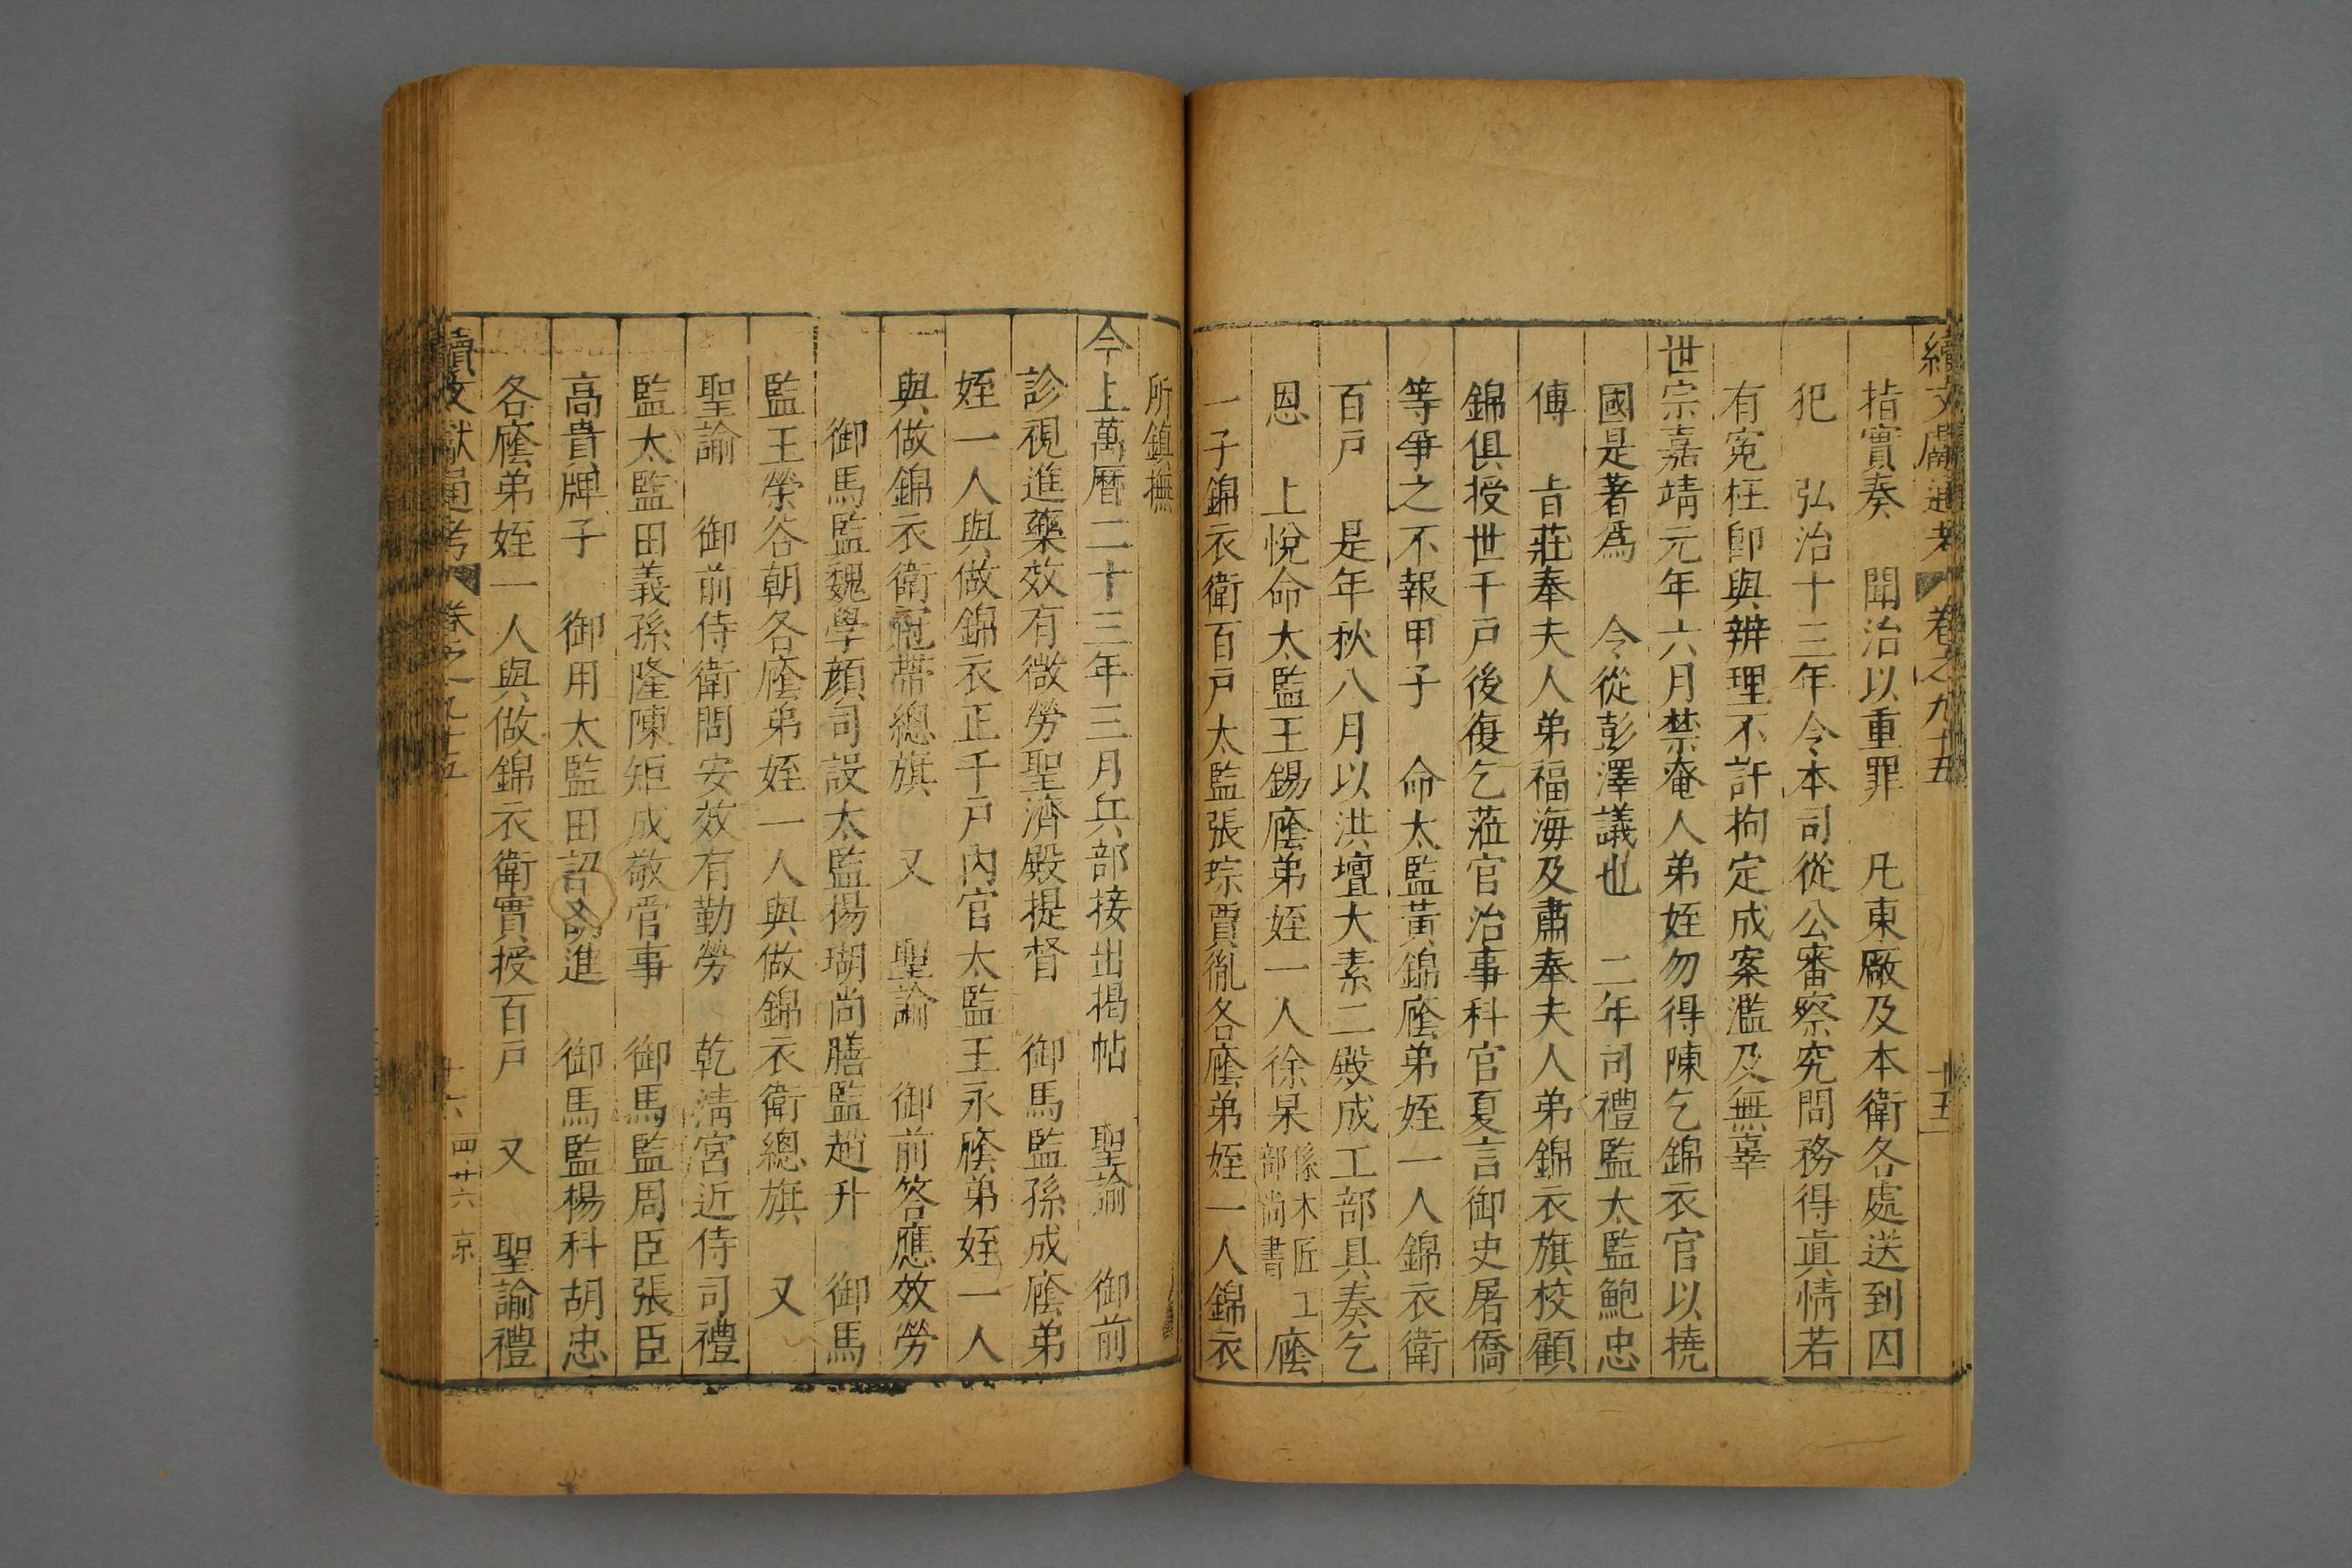 續文獻通考 卷之九十五 十五
指實奏 聞治以重罪 凡東廠及本衛各處送到囚
犯 弘治十三年令本司從公審察究問務得眞情若
有冤枉卽與辨理不許拘定成案濫及無辜
世宗嘉靖元年六月禁奄人弟姪勿得陳乞錦衣官以撓
國是著爲 令從彭澤議也 二年司禮監太監鮑忠
傳 旨莊奉夫人弟福海及肅奉夫人弟錦衣旗校顧
錦俱授世千戸後復乞蒞官治事科官夏言御史屠僑
等爭之不報甲子 命太監黃錦廕弟姪一人錦衣衛
百戸 是年秋八月以洪壇大素二殿成工部具奏乞
恩 上悅命太監王錫廕弟姪一人徐杲係木匠工部尚書廕
一子錦衣衛百戸太監張琮賈胤各廕弟姪一人錦衣
所鎮撫
今上萬曆二十三年三月兵部接出揭帖 聖諭 御前
診視進藥效有微勞聖濟殿提督 御馬監孫成廕弟
姪一人與做錦衣正千戸內官太監王永廕弟姪一人
與做錦衣衛冠帶總旗 又 聖諭 御前答應效勞
御馬監魏學顏司設太監揚瑚尚膳監趙升 御馬
監王榮谷朝各廕弟姪一人與做錦衣衛總旗 又
聖諭 御前侍衛問安效有勤勞 乾淸宮近侍司禮
監太監田義孫隆陳矩成敬管事 御馬監周臣張臣
高貴牌子 御用太監田詔 進 御馬監楊科胡忠
各廕弟姪一人與做錦衣衛實授百戸 又 聖諭禮
續文獻通考 卷之九十五 十六 四廿六 京